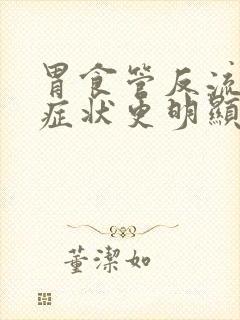 胃食管反流
症状更明顯
董潔如